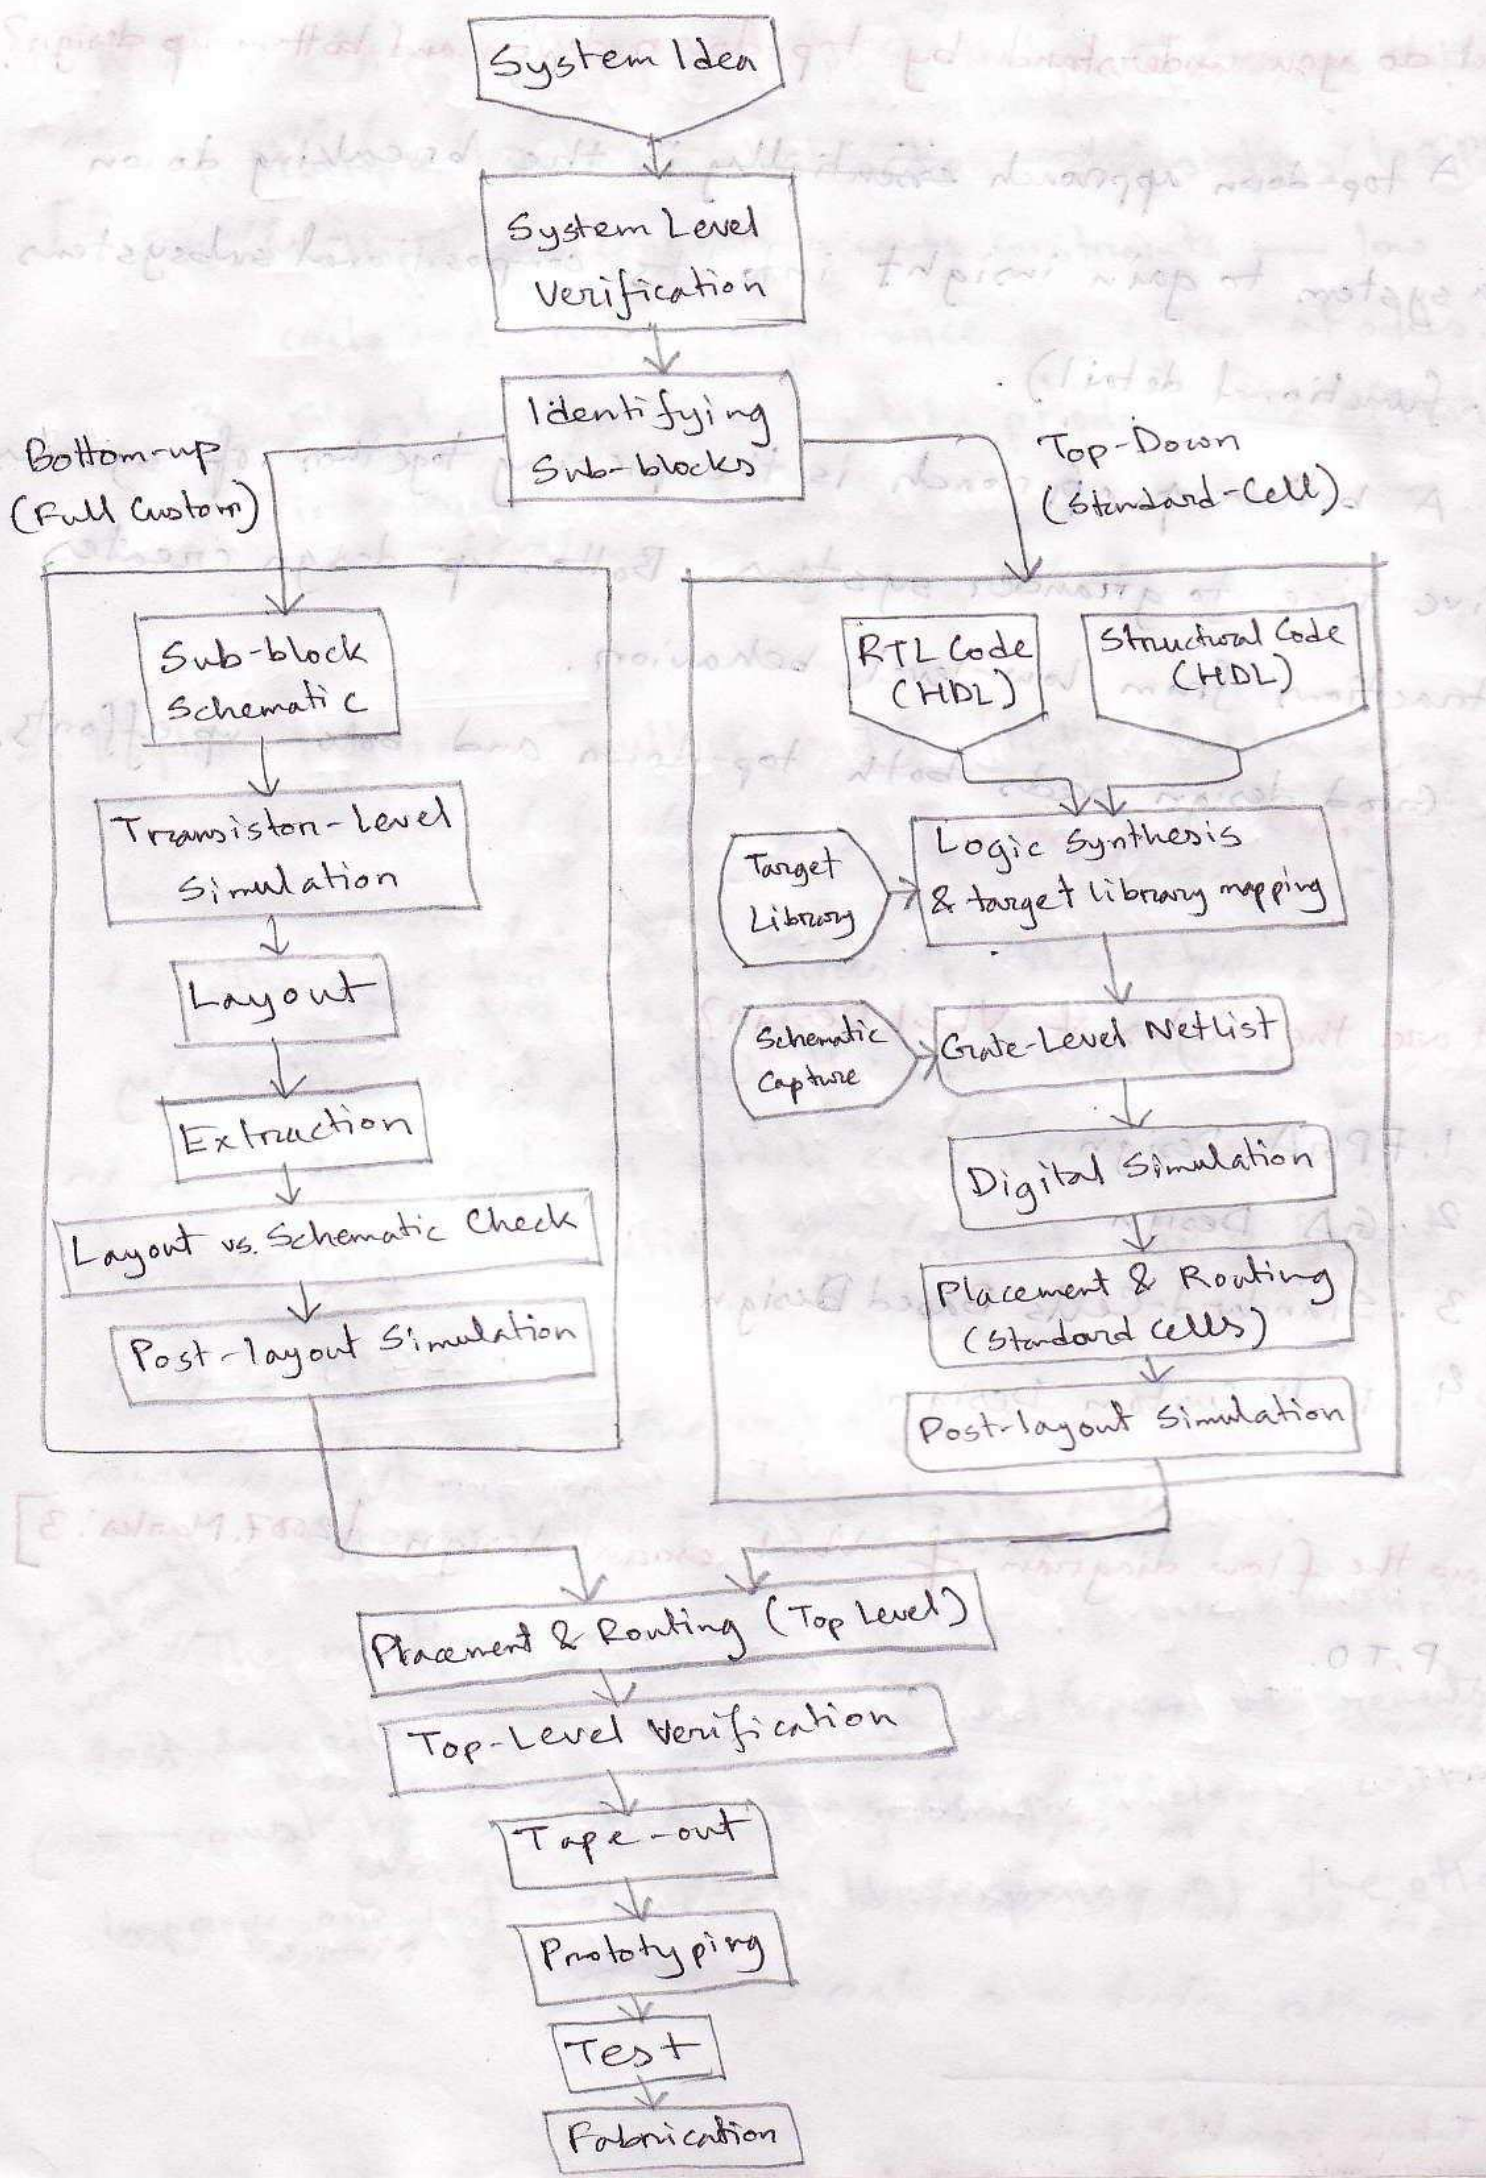 System Idea
System Level
Verification
Identifying
Sub-blocks
Bottom-up
(Full Custom)
Top-Down
(Standard-Cell)
Sub-block
Schematic
Transistor-Level
Simulation
Layout
Extraction
Layout vs. Schematic Check
Post-layout Simulation
RTL Code
(HDL)
Structural Code
(HDL)
Target
Library
Logic Synthesis
& target library mapping
Schematic
Capture
Gate-Level Netlist
Digital Simulation
Placement & Routing
(Standard cells)
Post-layout Simulation
Placement & Routing (Top Level)
Top-Level Verification
Tape-out
Prototyping
Test
Fabrication